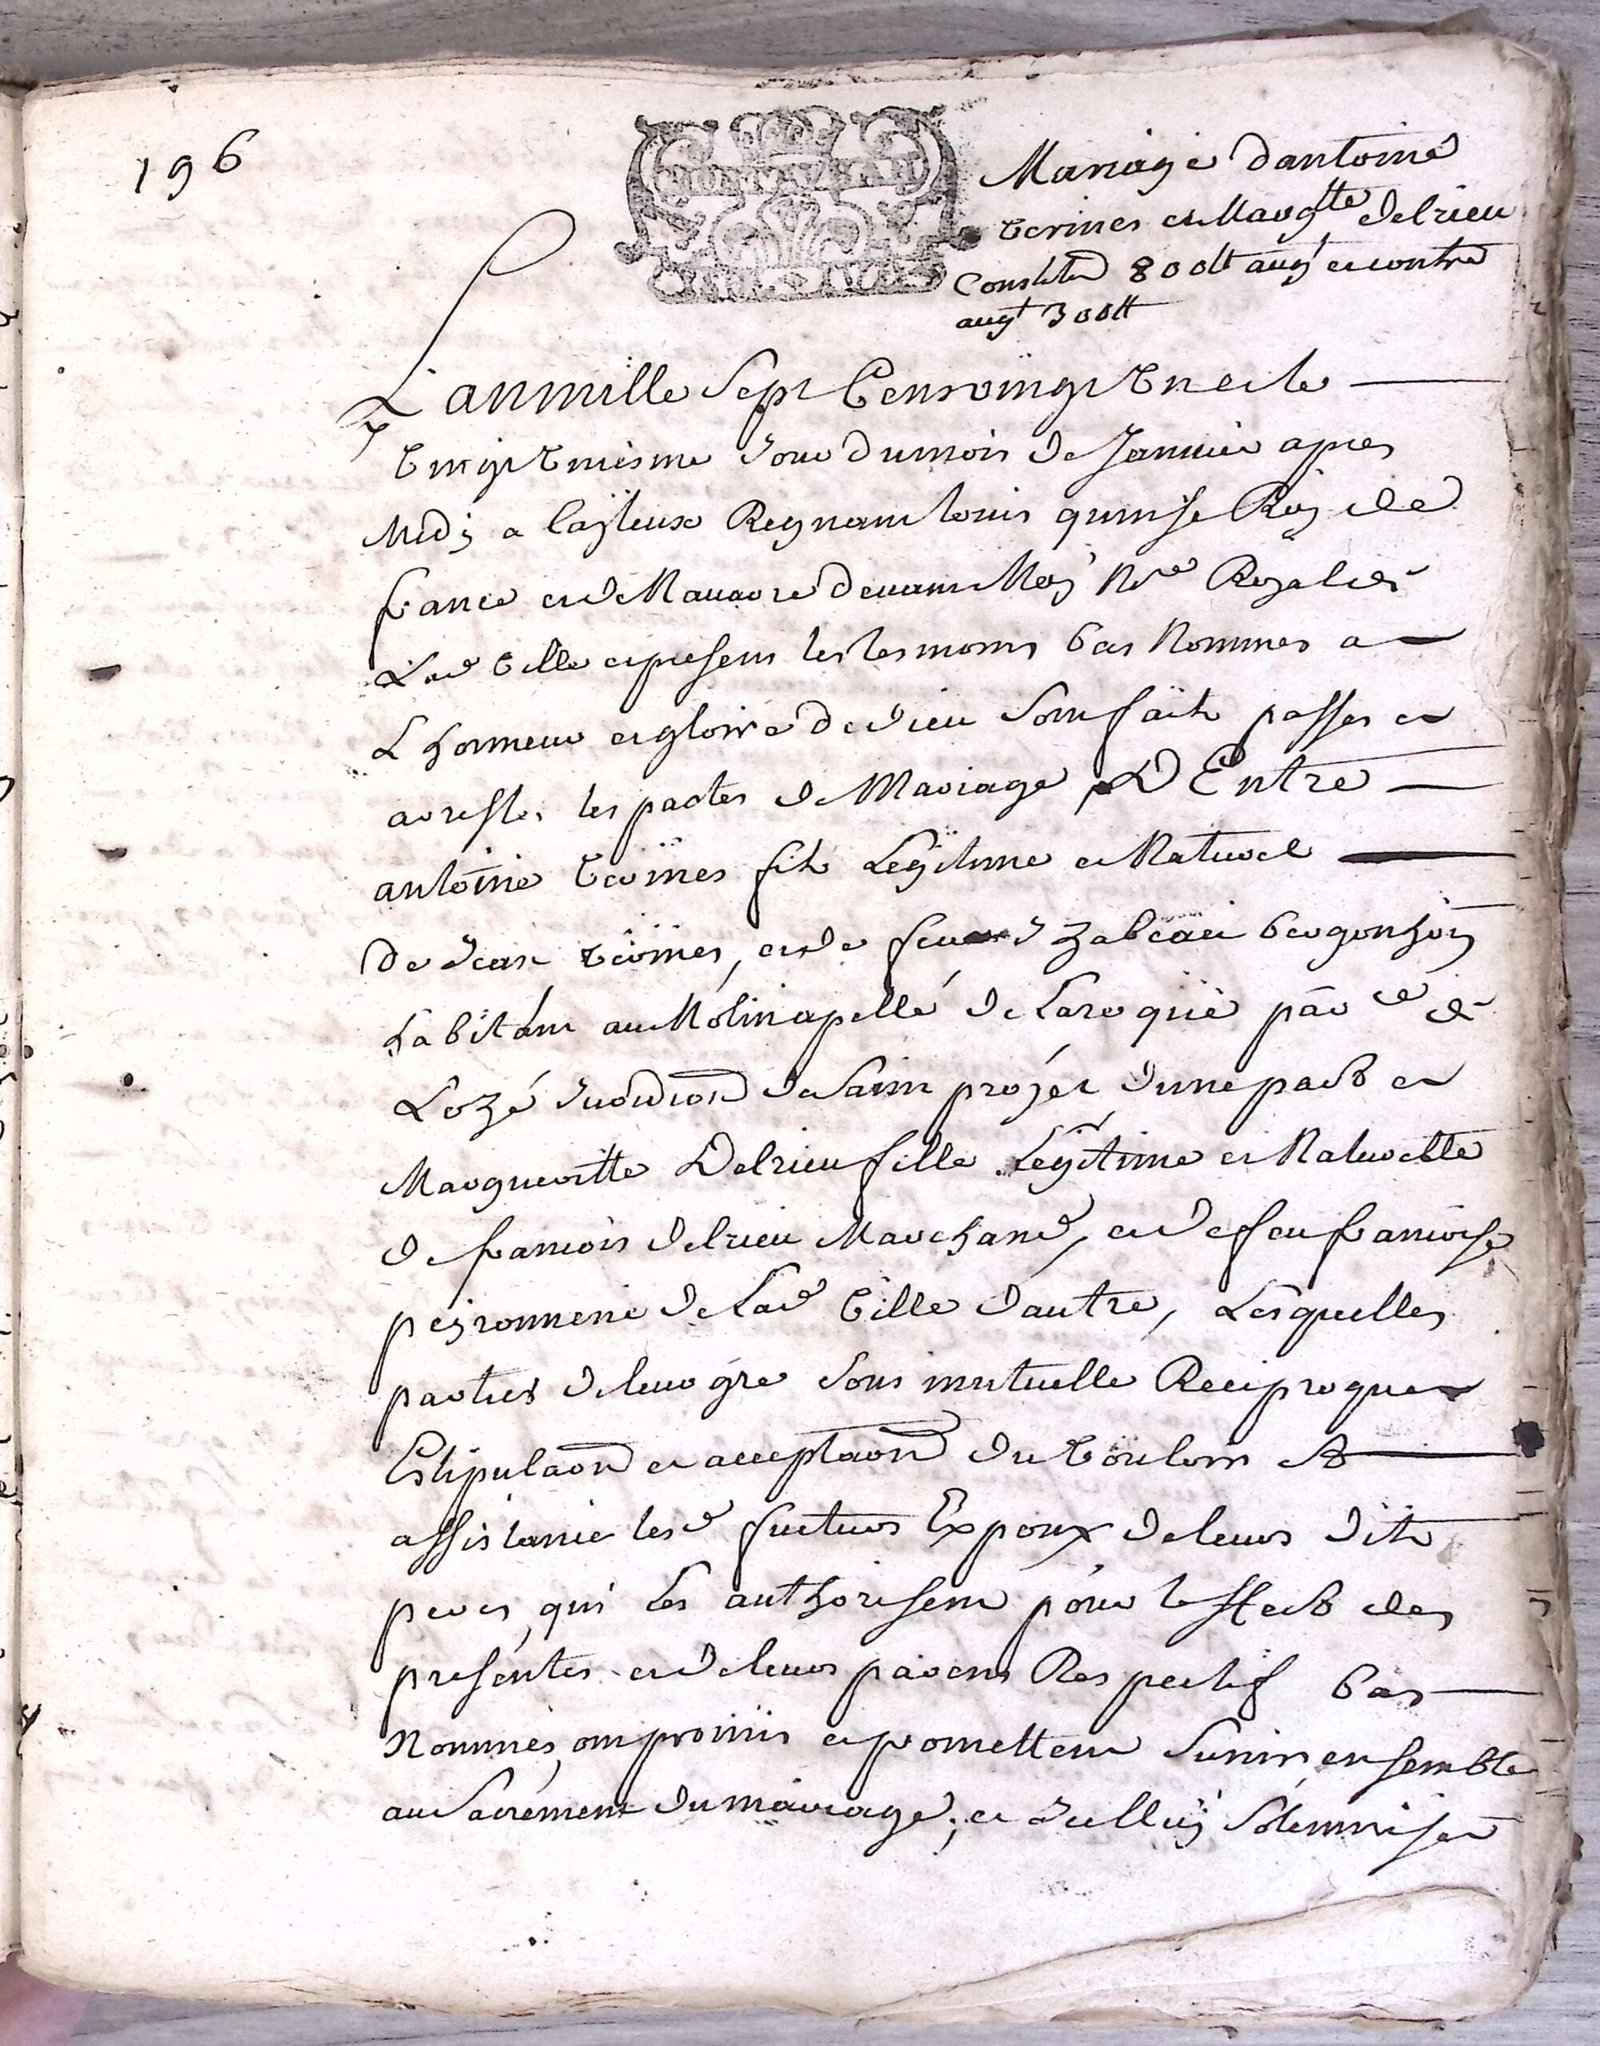 196
Mariage dantoine
Verines et Marg^tte Delrieu
Constit^on 800 lt aug^t et contre
aug^t 300 lt
L'an mille Sept Cens vingt Un et le
Vingt Uniesme Jour du mois de Janvier apres
Midy a Cayleux Regnant louis quinse Roy de
france et de Navarre devant Moy No^re Royal de
Lad^e Ville et presens les tesmoins bas Nommes a
L'honneur et gloire de dieu Sont faits passes et
arrestes les pactes de Mariage D'Entre
antoine Verines fils Legitime et Naturel
de Jean Verines, et de feue Izabeau bergonhon
habitant au Molin apellé de Laroque par^sse de
Lozé Juridi^on de Saint projet d'une part et
Margueritte Delrieu fille Legitime et Naturelle
de francois delrieu Marchand, et de feu francoise
peyronnene de Lad^e Ville d'autre, Lesquelles
parties de leur gre Sous mutuelle Reciproque
Estipulaon et acceptaon du Vouloir et
assistance lesd^s futurs Expoux de leurs dits
peres, qui les authorisent pour l'effect des
presentes et de leurs parens Respectifs bas
Nommes, ont promis et promettent S'unir ensemble
au Sacrement du mariage, et Icelluy Solemniser